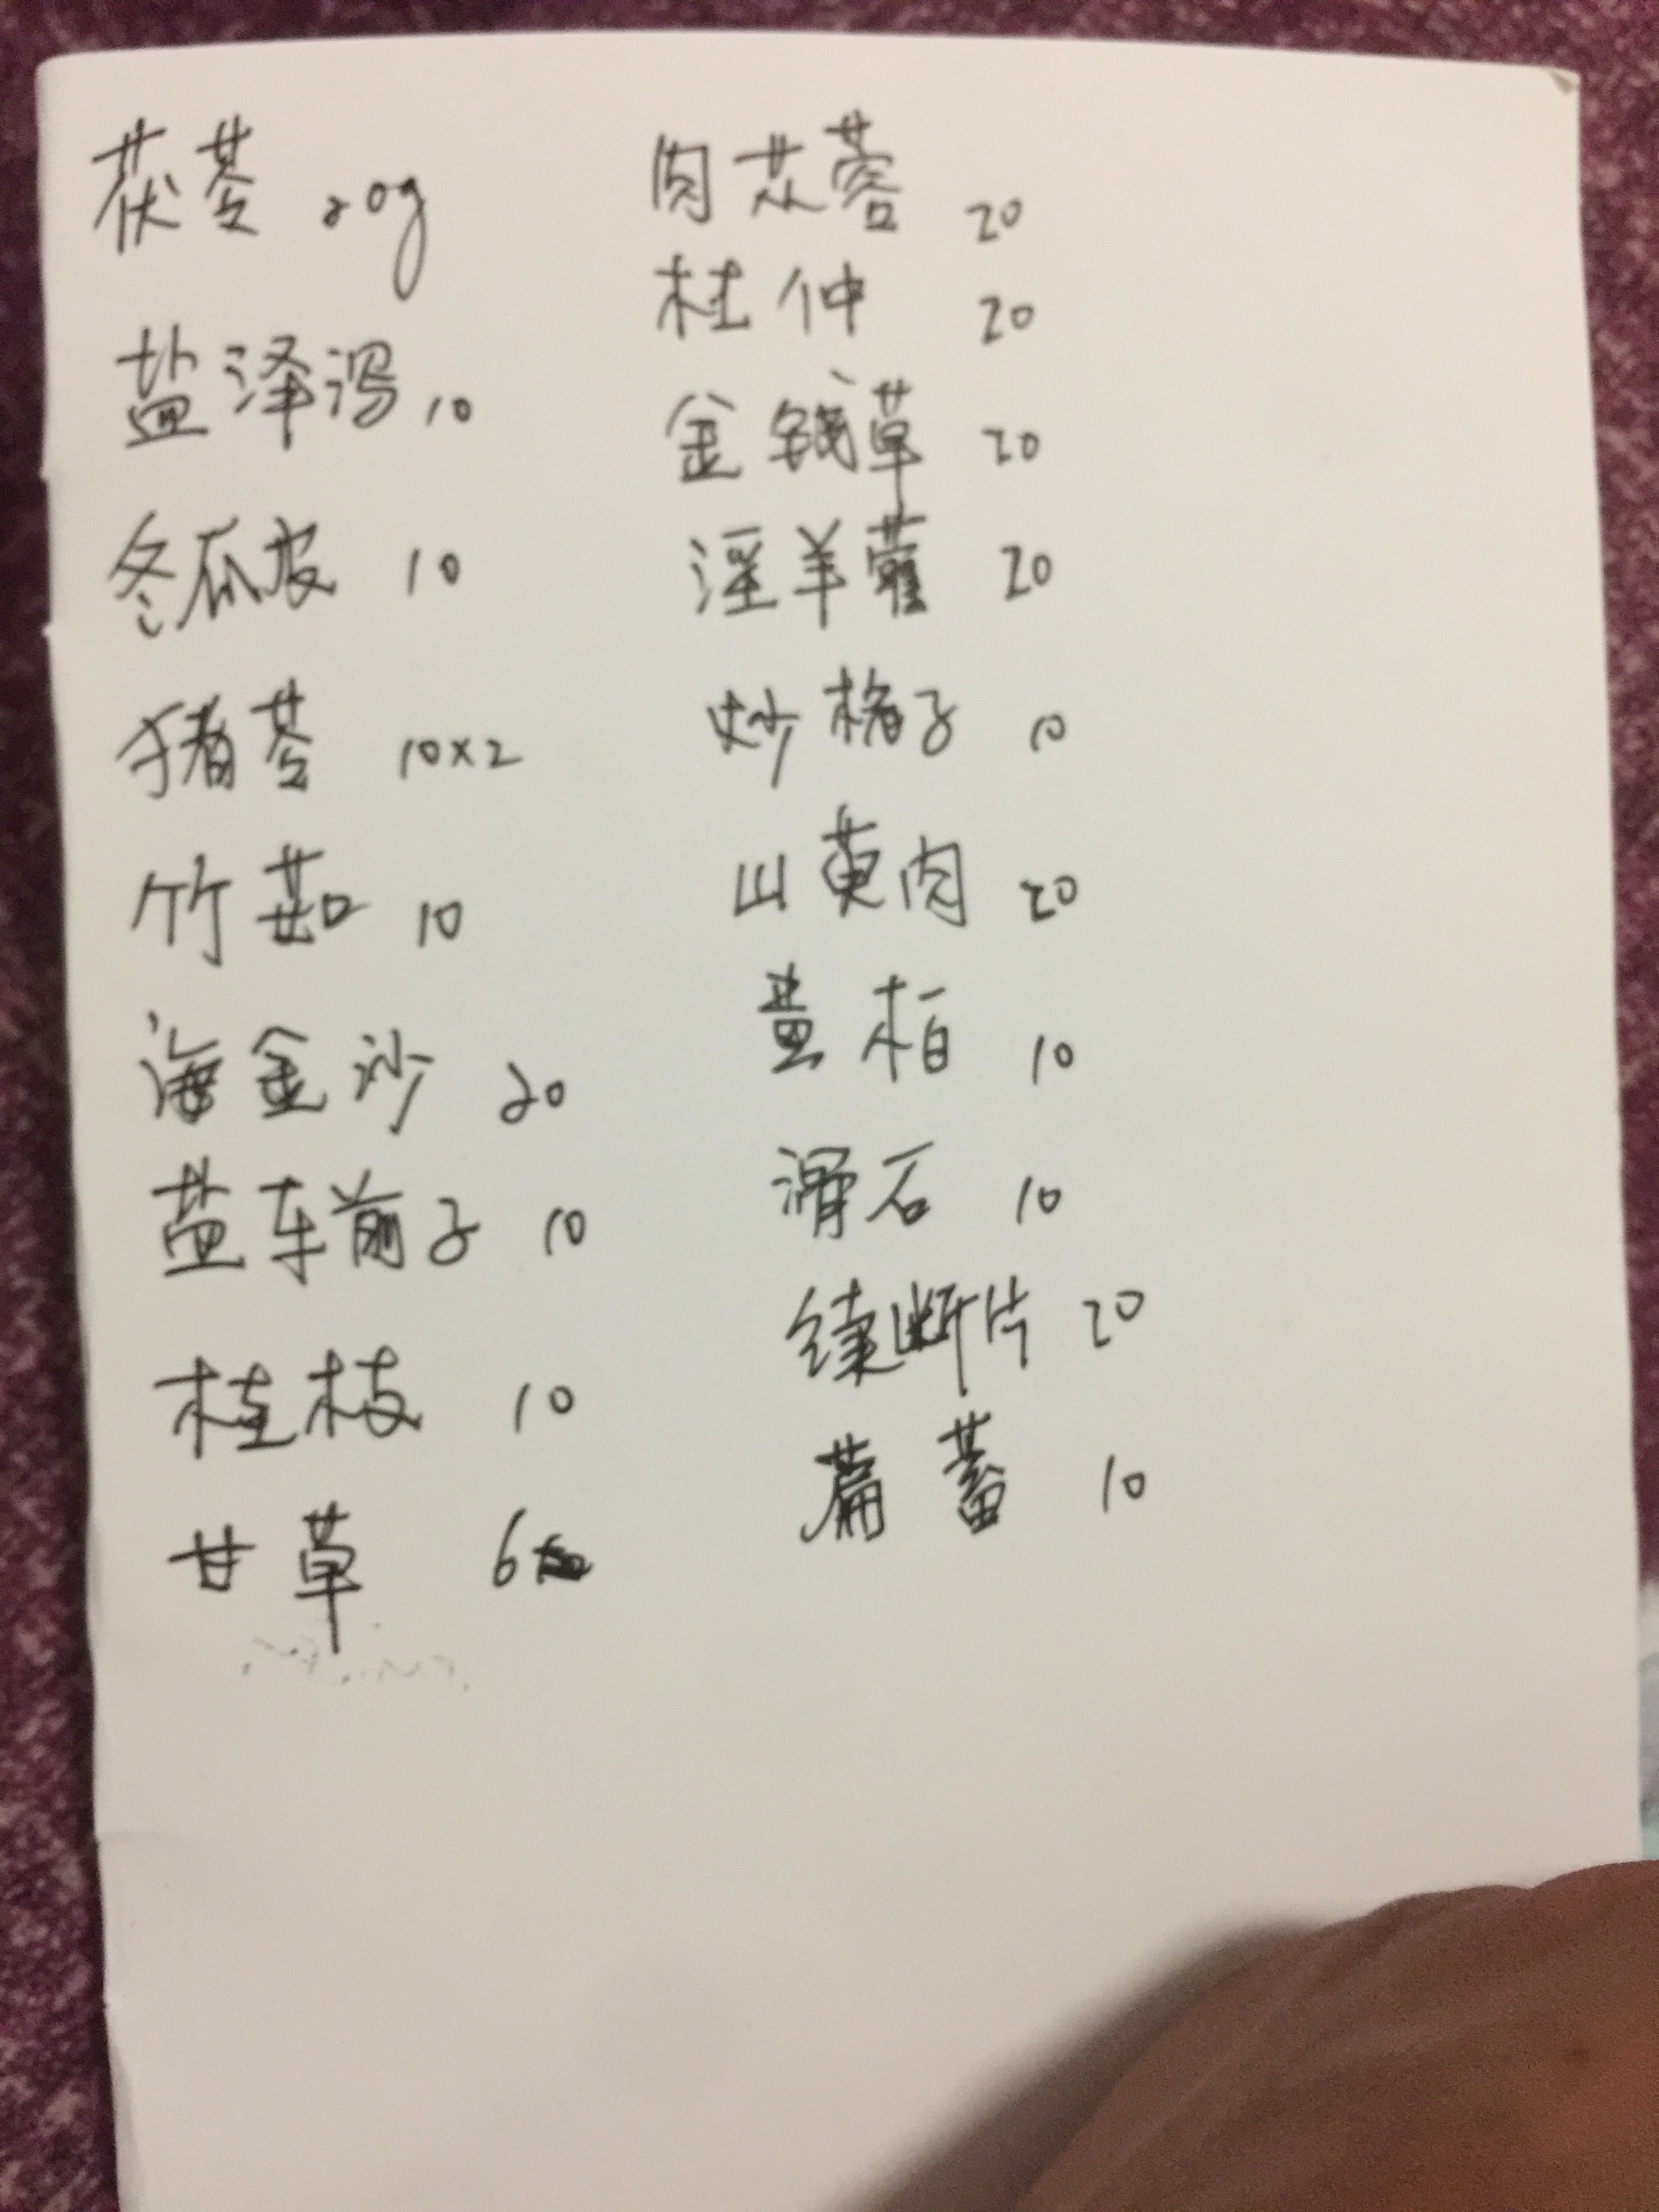 茯苓 20g
盐泽泻 10
冬瓜皮 10
猪苓 10×2
竹茹 10
海金沙 20
盐车前子 10
桂枝 10
甘草 6
肉苁蓉 20
杜仲 20
金钱草 20
淫羊藿 20
炒楮子 10
山萸肉 20
黄柏 10
滑石 10
续断片 20
萹蓄 10